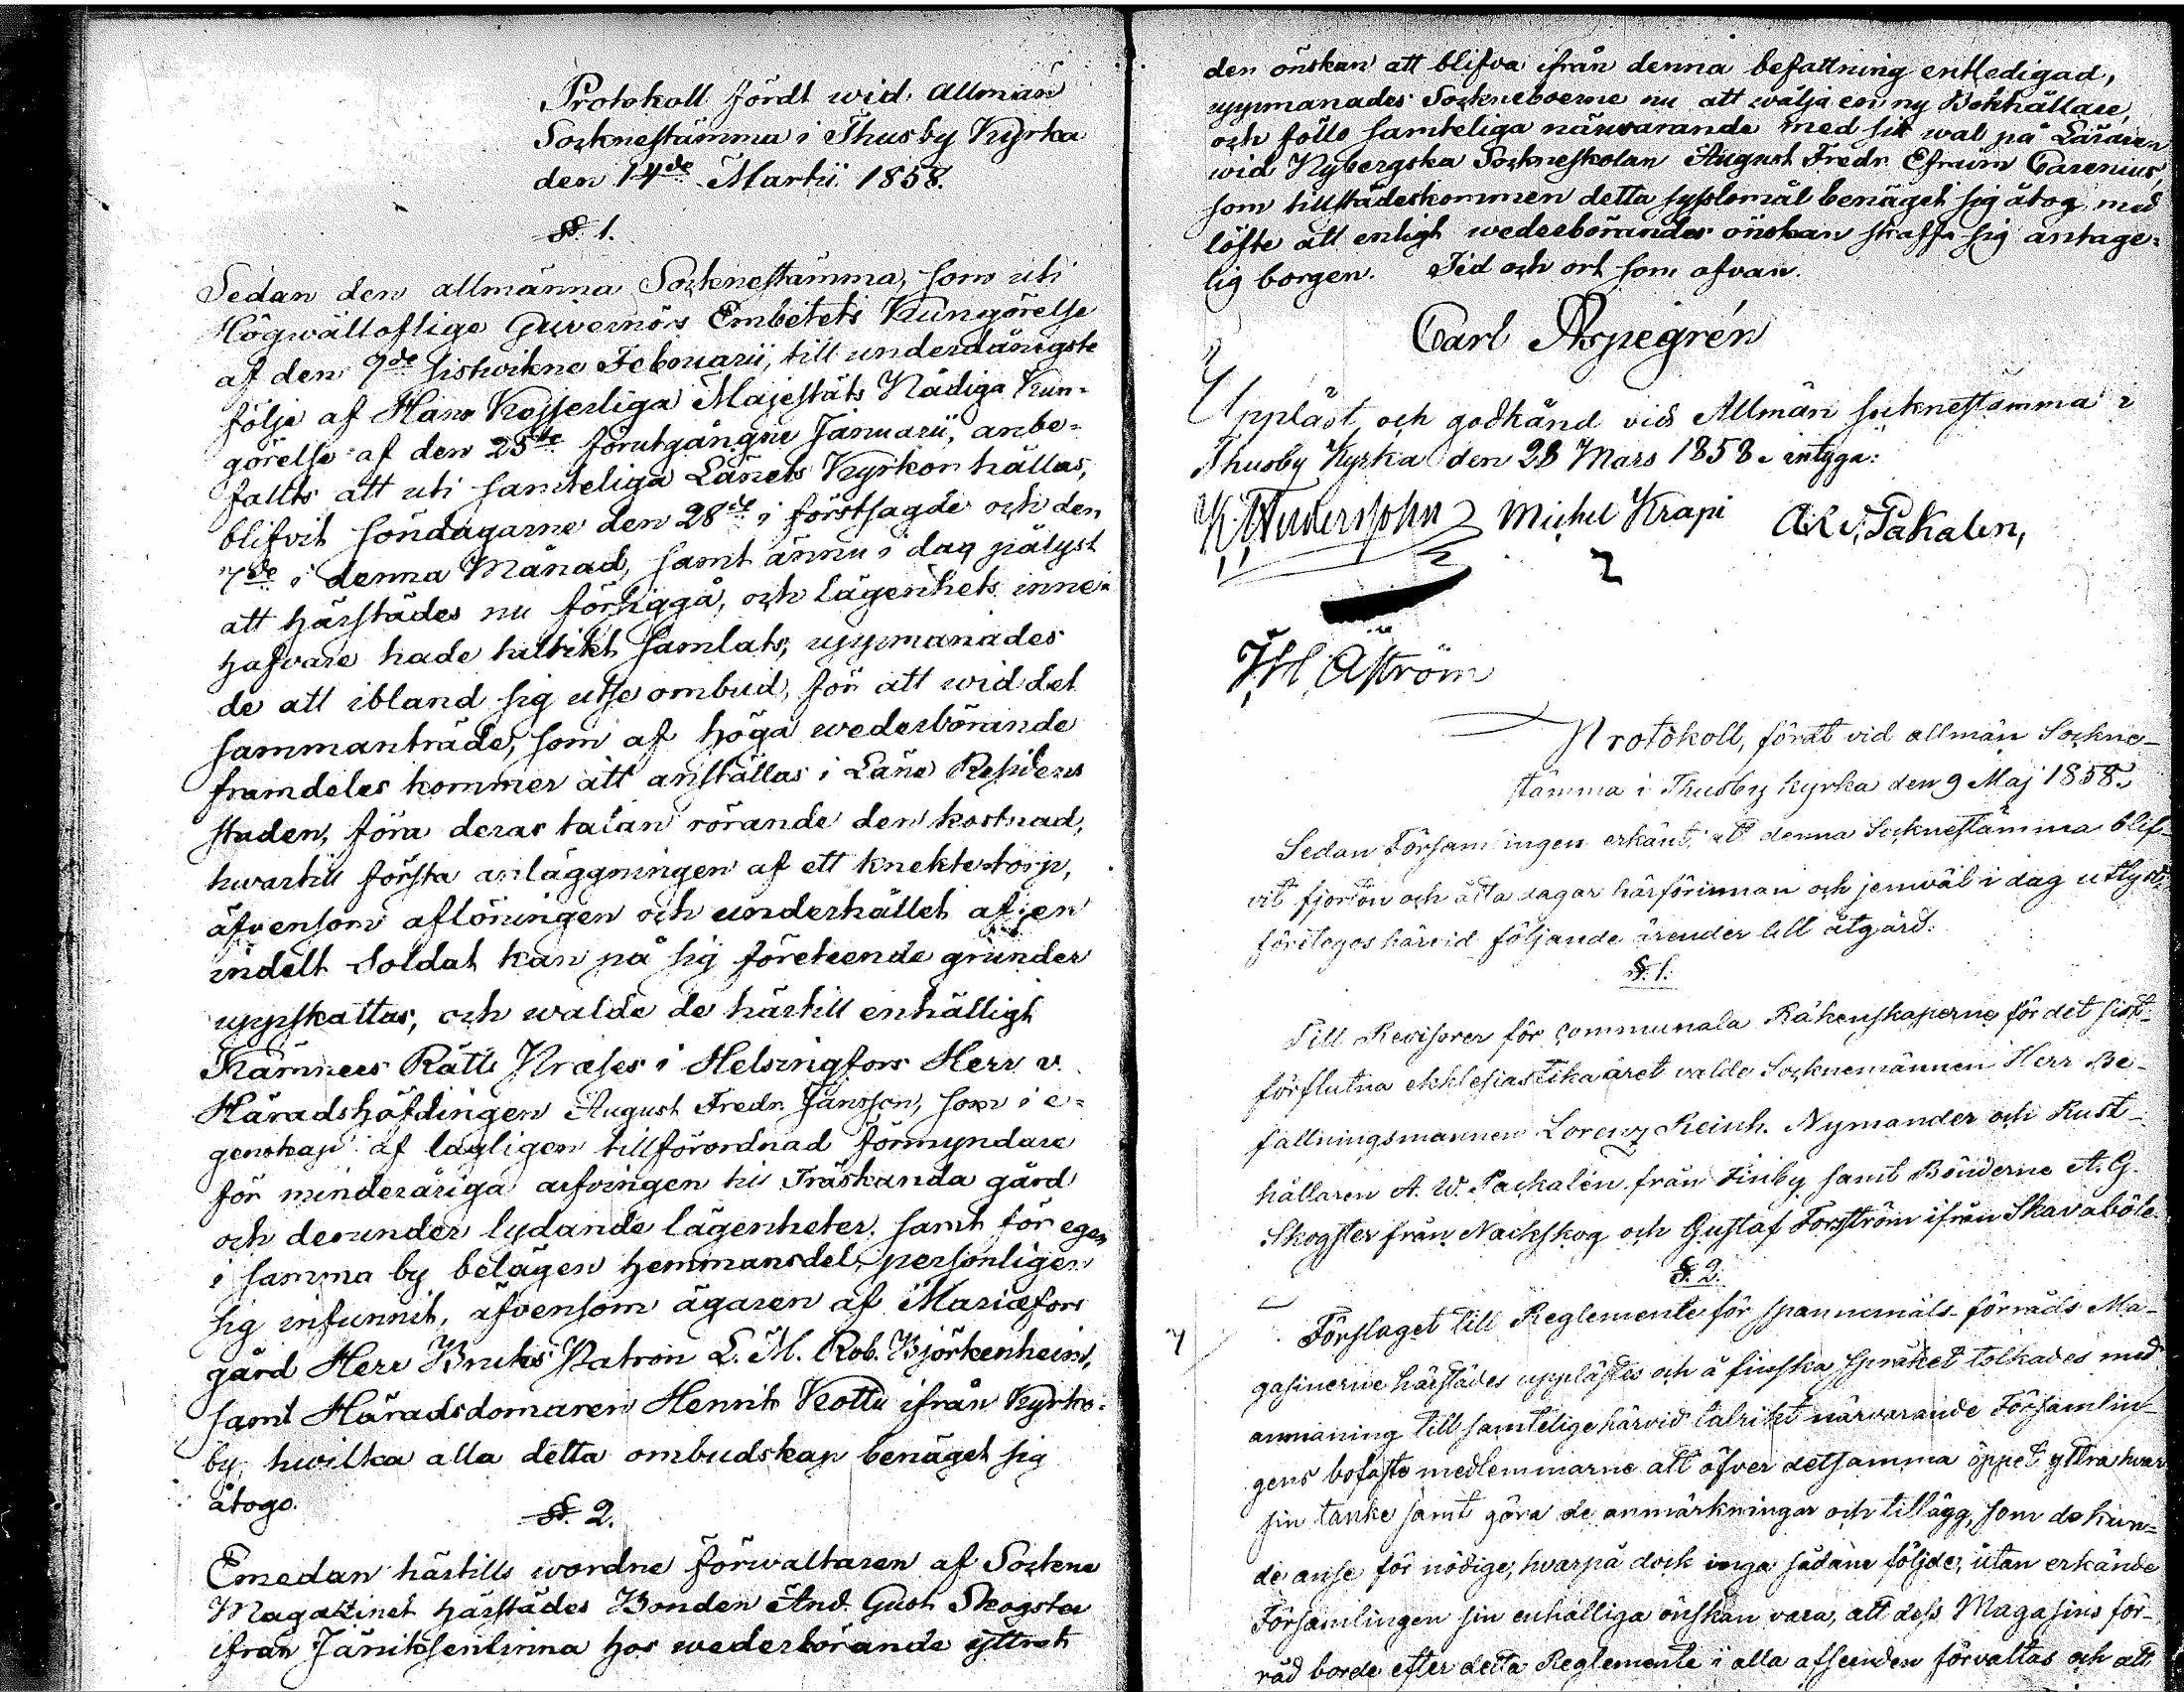 Protokoll fördt wid Allmän
Socknestämma i Thusby Kyrka
den 14de Martii 1858.
§. 1.
Sedan den allmänna Socknestämma, som uti
Högwälloflige Guvernörs Embetets Kungörelse
af den 9de sistvikne Februarii, till underdånigste
följe af Hans Kejserliga Majestäts Nådiga Kun-
görelse af den 25te förutgångne Januarii, anbe-
fallts att uti samteliga Länets Kyrkor hållas,
blifvit söndagarne den 28de i förstsagde och den
7de i denna Månad, samt ännu i dag pålyst
att härstädes nu försiggå, och lägenhets inne-
hafvare hade talrikt samlats, uppmanades
de att ibland sig utse ombud, för att wid det
sammanträde, som af höga wederbörande
framdeles kommer att anställas i Läne Residens
staden, föra deras talan rörande den kostnad,
hwartill första anläggningen af ett knektetorp,
äfvensom aflöningen och underhållet af en
indelt Soldat kan på sig företeende grunder
uppskattas, och walde de härtill enhälligt
Kämners Rätts Præses i Helsingfors Herr v.
Häradshöfdingen August Fredr. Jansson, som i e-
genskap af lagligen tillförordnad förmyndare
för minderåriga arfvingen till Träskanda gård
och derunder lydande lägenheter, samt för egen
i samma by belägen hemmansdel, personligen
sig infunnit, äfvensom ägaren af Mariæfors
gård Herr Bruks Patron L. M. Rob. Björkenheim,
samt Häradsdomaren Henrik Kottu ifrån Kyrko-
by, hwilka alla detta ombudskap benäget sig
åtogo.
§. 2.
Emedan härtills wordne förwaltaren af Sockne
Magazinet härstädes Bonden And. Gust. Skogster
ifrån Jäniksenlinna hos wederbörande yttrat
den önskan att blifva ifrån denna befattning entledigad,
uppmanades Sockneboerne nu att wälja en ny Bokhållare,
och föllo samteliga närwarande med sitt wal på Läraren
wid Kybergska Sockneskolan August Fredr. Efraim Carenius,
som tillstädeskommen detta sysslomål benäget sig åtog, med
löfte att enligt wederbörandes önskan skaffa sig antage-
lig borgen. Tid och ort som ofvan.
Carl Aspegrén
Uppläst och godkänd vid Allmän socknestämma i
Thusby Kyrka den 28 Mars 1858. intyga:
K. Anderssohn Michel Krapi A. W. Pakalen,
J H Åström
Protokoll, fördt vid allmän Sockne-
stämma i Thusby kyrka den 9 Maj 1858.
Sedan Församlingen erkänt, att denna Socknestämma blif-
vit fjorton och åtta dagar härförinnan och jemwäl i dag utlyst,
företogos härvid följande ärender till åtgärd.
§. 1.
Till Revisorer för communala Räkenskaperne för det sist-
förflutna ekklesiastika året valde Socknemännen Herr Be-
fallningsmannen Lorenz Reinh. Nymander och Rust-
hållaren A. W. Packalén från Finby samt Bönderne A. G.
Skogster från Nackskog och Gustaf Forsström ifrån Skavaböle.
§. 2.
Förslaget till Reglemente för spannemåls-förråds Ma-
gasinerne härstädes upplästes och å finska språket tolkades med
anmaning till samtelige härvid talrikt närvarande Församlin-
gens bofaste medlemmarne att öfver detsamma öppet yttra hvar
sin tanke samt göra de anmärkningar och tillägg, som de kun-
de anse för nödige, hvarpå dock inga sådane följde, utan erkände
Församlingen sin enhälliga önskan vara, att dess Magasins för-
råd borde efter detta Reglemente i alla afseenden förvaltas och att